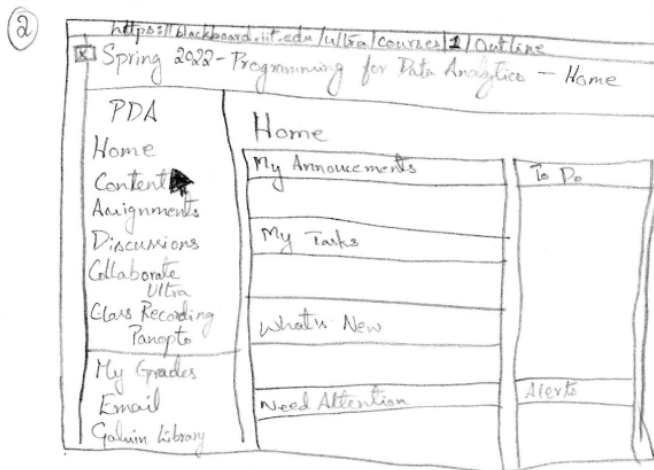 2
https://blackboard.iit.edu/ultra/courses/1/Outline
X Spring 2022 - Programming for Data Analytics - Home
PDA
Home
Content
Assignments
Discussions
Collaborate
Ultra
Class Recording
Panopto
My Grades
Email
Galvin Library
Home
My Annoucements
My Tasks
What's New
Need Attention
To Do
Alerts